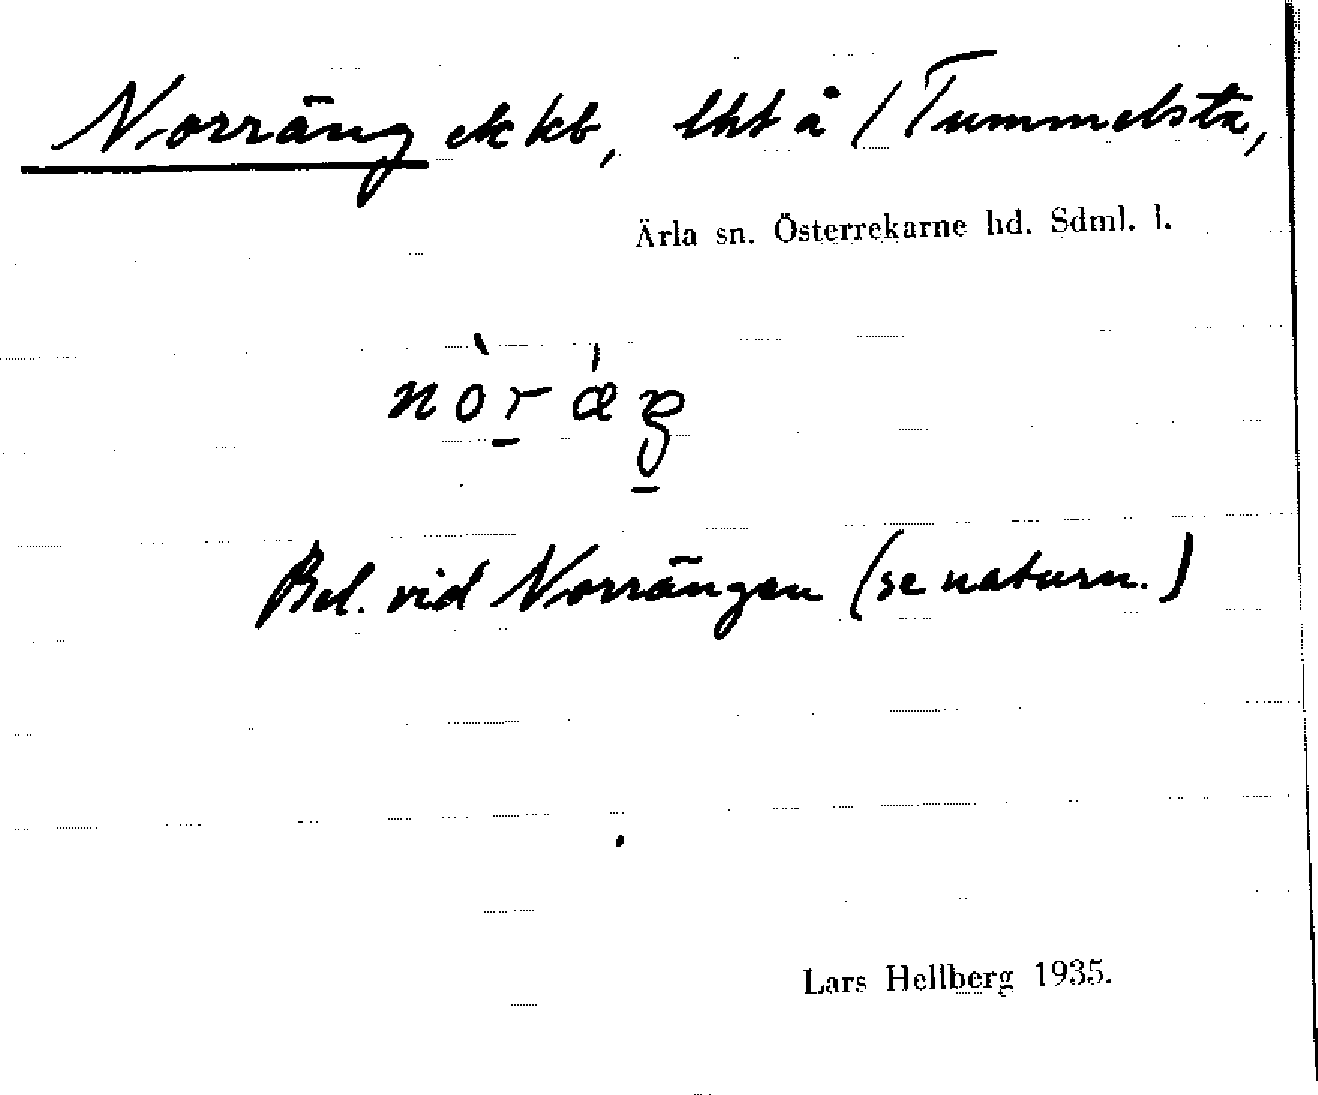 Norräng ek kb, lht å / Tummelsta,
Ärla sn. Österrekarne hd. Sdml. l.
Bel. vid Norrängen (se naturn.)
Lars Hellberg 1935.